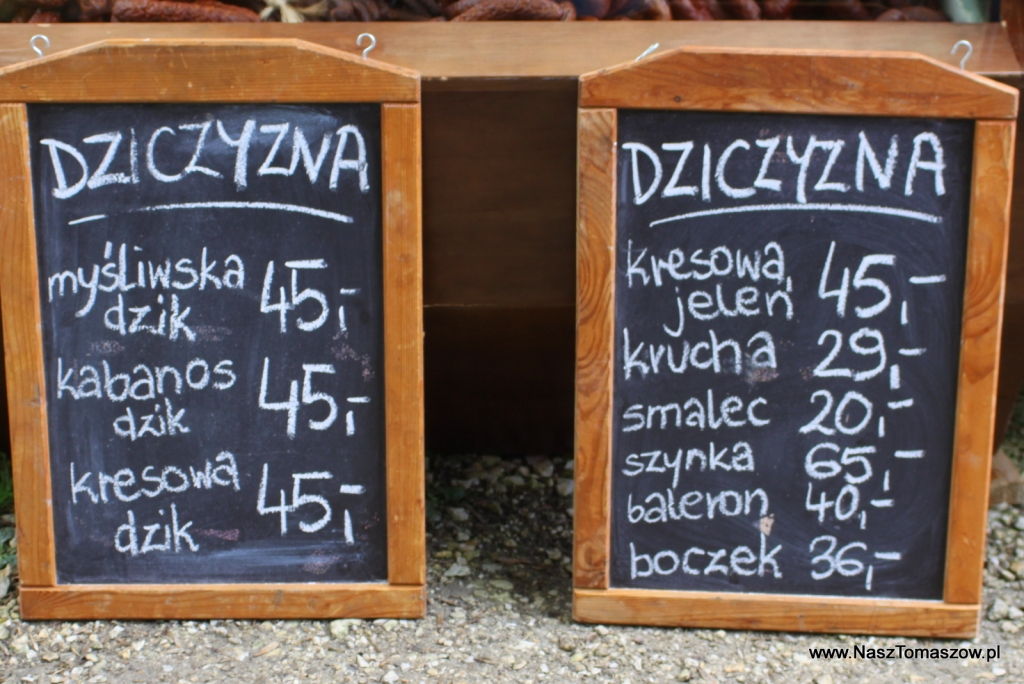 DZICZYZNA
myśliwska 45,-
dzik
kabanos 45,-
dzik
kresowa 45,-
dzik
DZICZYZNA
kresowa 45,-
jeleń
krucha 29,-
smalec 20,-
szynka 65,-
baleron 40,-
boczek 36,-
www.NaszTomaszow.pl